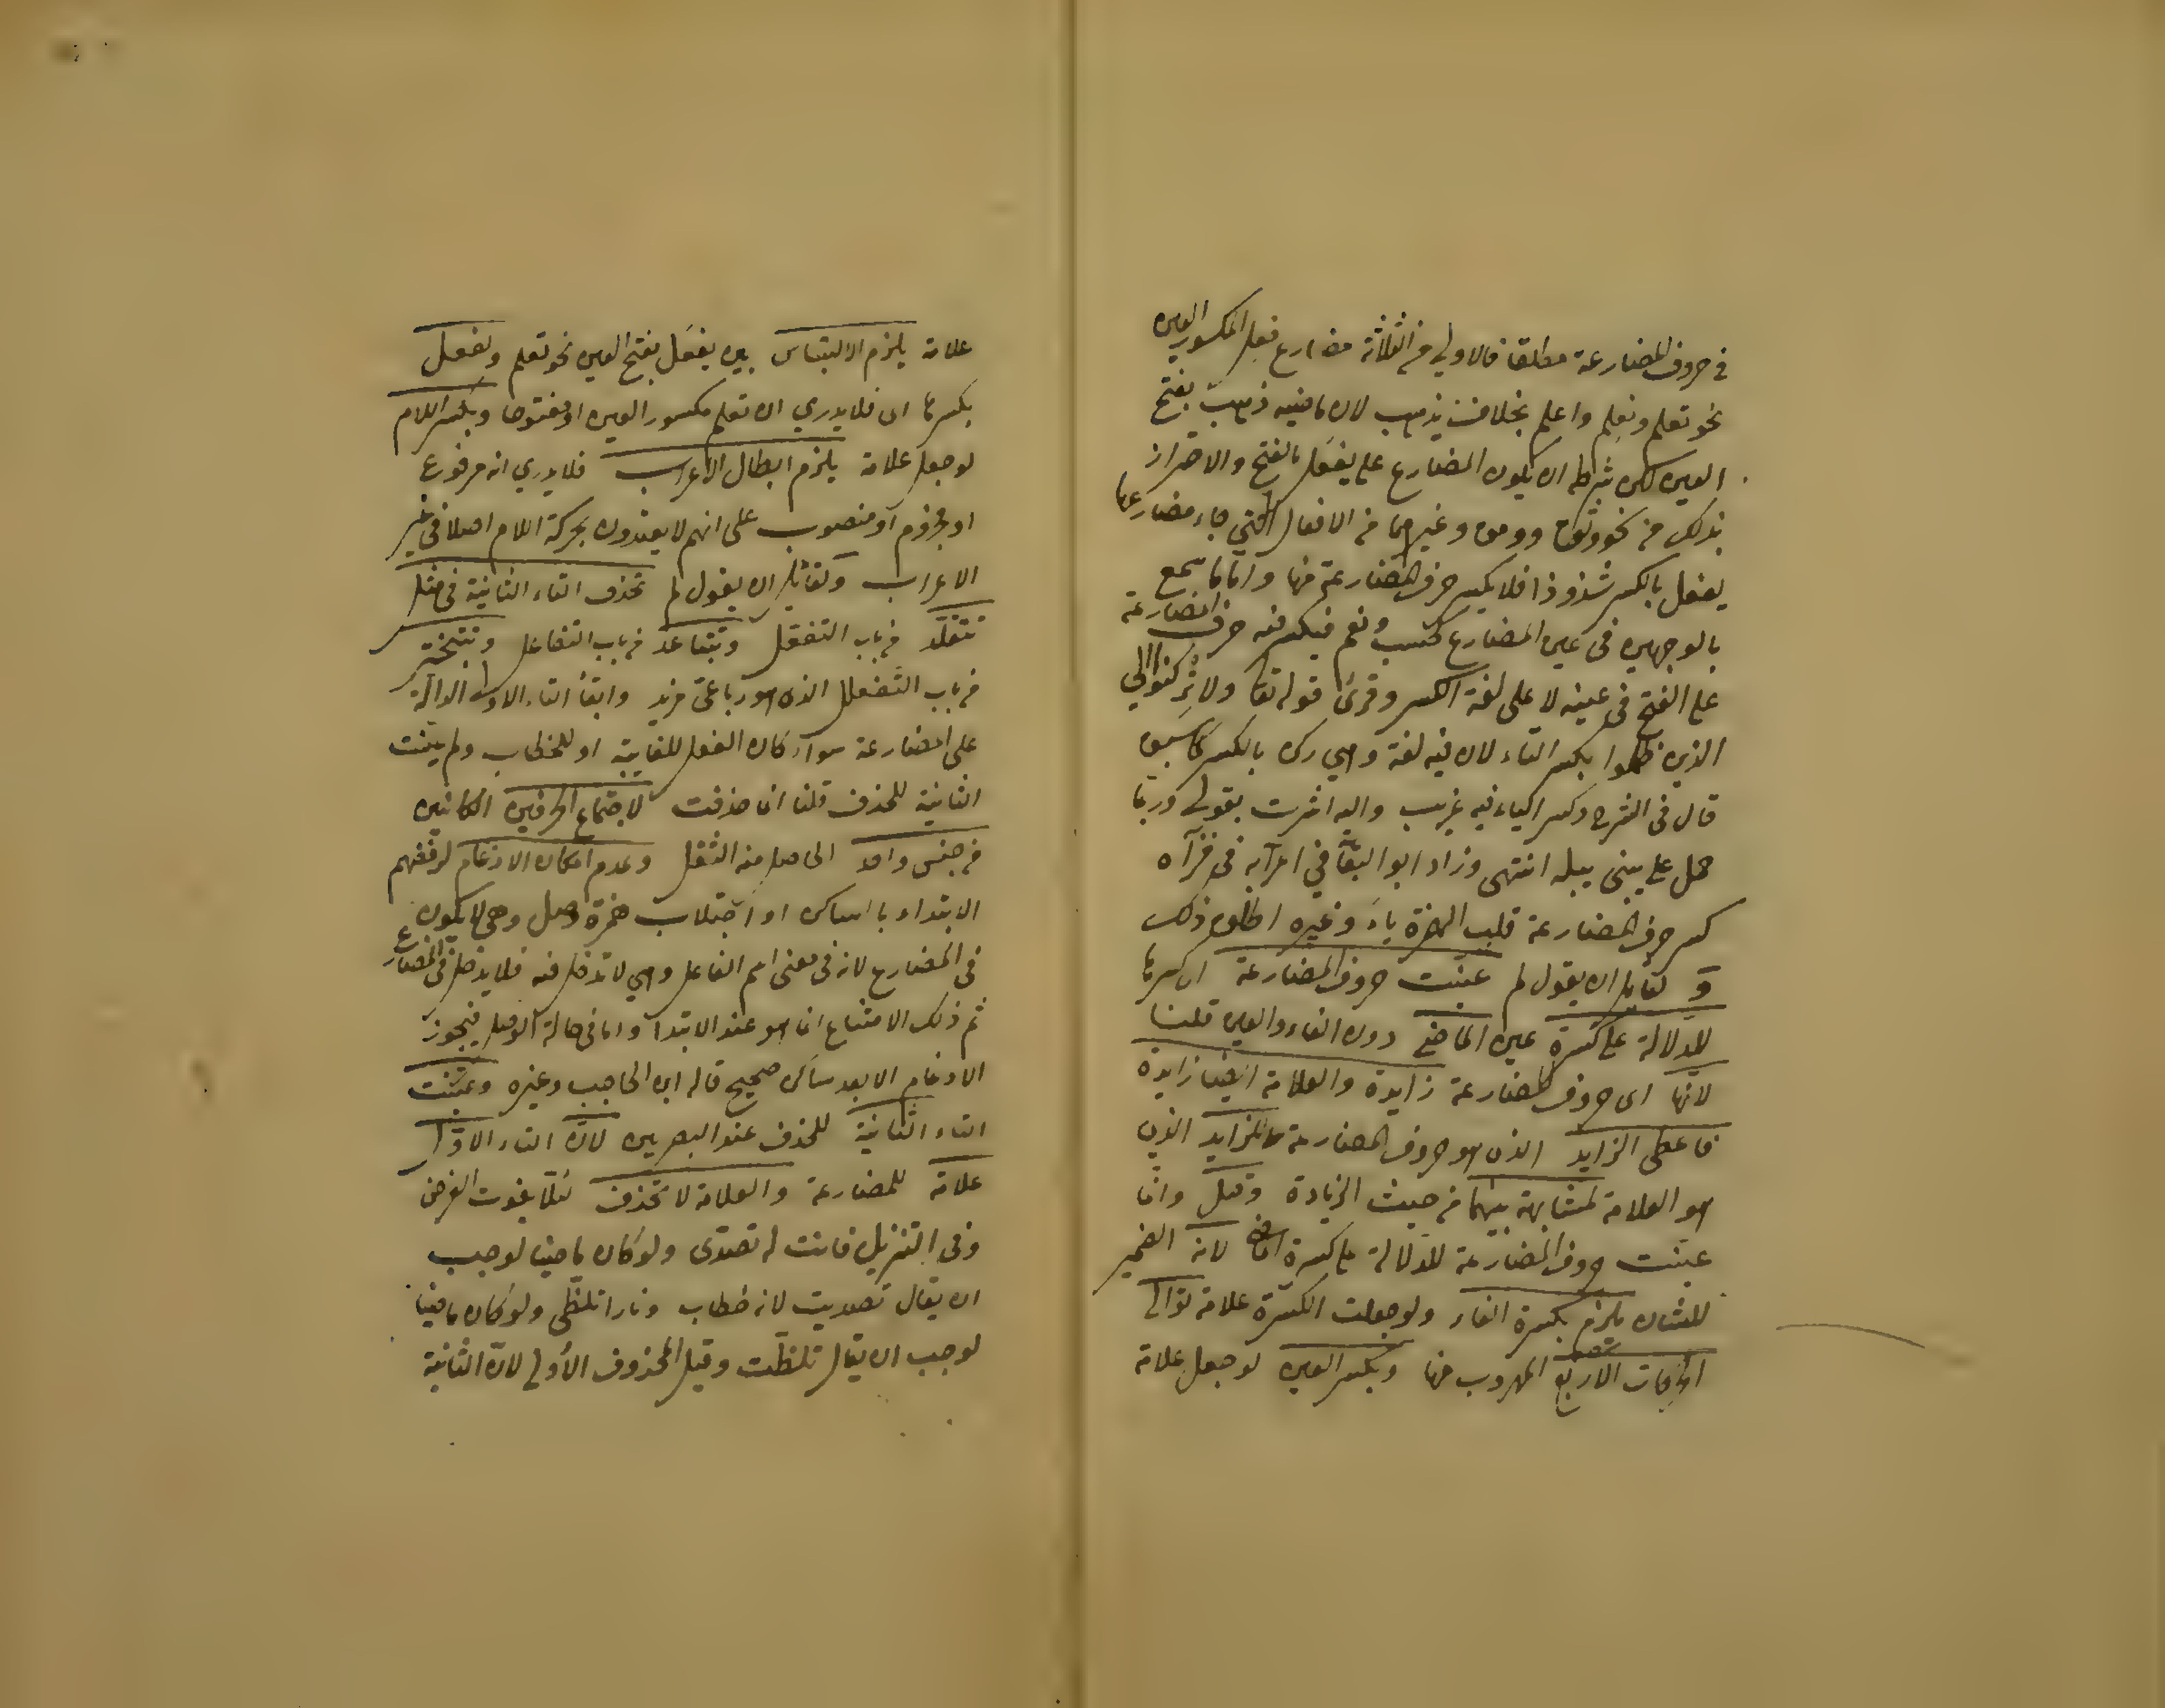 في حروف المضارعة مطلقا فالاولي من الثلاثة مضارع فعل المكسور العين
نحو تعلم ونعلم واعلم بخلاف يذهب لان ماضيه ذهب بفتح
العين لكن شرطه ان يكون المضارع على يفعل بالفتح والاحتراز
بذلك من نحو وثق وومق وغيرهما من الافعال التي جاء مضارعها
يفعل بالكسر شذوذا فلا يكسر حرف المضارعة منها واما ما سمع
بالوجهين في عين المضارع كحسب ونعم فيكسر فيه حرف المضارعة
على الفتح في عينه لا على لغة الكسر وقرئ قوله تعا ولا تركنوا الى
الذين ظلموا بكسر التاء لان فيه لغة وهي ركن بالكسر كما سبق
قال في الشرح وكسر الياء فيه غريب واليه اشرت بقولي وربما
حمل على يبنى يبله انتهى وزاد ابو البقاء في اعرابه في قرآة
كسر حرف المضارعة قلب الهمزة ياء وغيره اطلق ذلك
و لقايل ان يقول لم عينت حروف المضارعة اي كسرتها
للدلالة على كسرة عين الماضي دون الفاء والعين قلنا
لانها اى حروف المضارعة زايدة والعلامة ايضا زايدة
فاعطى الزايد الذى هو حروف المضارعة للزايد الذى
هو العلامة لمشابهة بينهما من حيث الزيادة وقيل وانما
عينت حروف المضارعة للدلالة على كسرة الماضي لانه الضمير
للشان يلزم بكسرة الفاء ولو جعلت الكسرة علامة توالى
الحركات الاربع المهروب منها وبكسر العين لو جعل علامة
علامة يلزم الالتباس بين يفعل بفتح العين نحو تعلم ويفعل
بكسرها اى فلا يدري ان تعلم مكسور العين او مفتوحا وبكسر اللام
لو جعل علامة يلزم ابطال الاعراب فلا يدري انه مرفوع
او مجزوم او منصوب على انهم لا يعتدون بحركة اللام اصلا في غير
الاعراب ولقائل ان يقول لم تحذف التاء الثانية في مثل
تتقلد من باب التفعل وتتباعد من باب التفاعل وتتبختر
من باب التفعلل الذى هو رباعى مزيد وابقا التاء الاولى الدالة
على المضارعة سوآء كان الفعل للغايبة او للخطاب ولم عينت
الثانية للحذف قلنا انما حذفت لاجتماع الحرفين الكائنين
من جنس واحد الحاصل منه الثقل وعدم امكان الادغام لرفضهم
الابتداء بالساكن او اجتلاب همزة وصل وهى لا تكون
في المضارع لانه في معنى اسم الفاعل وهي لا تدخل فيه فلا يدخل في المضارع
ثم ذلك الامتناع انما هو عند الابتدا واما في حالة الوصل فيجوز
الادغام الا بعد ساكن صحيح قاله ابن الحاجب وغيره وعينت
التاء الثانية للحذف عند البصريين لان التاء الاولى
علامة للمضارعة والعلامة لا تحذف لئلا يفوت الغرض
وفى التنزيل فانت له تصدى ولو كان ماضيا لوجب
ان يقال تصديت لانه خطاب ونارا تلظى ولو كان ماضيا
لوجب ان يقال تلظت وقيل المحذوف الاولى لان الثانية